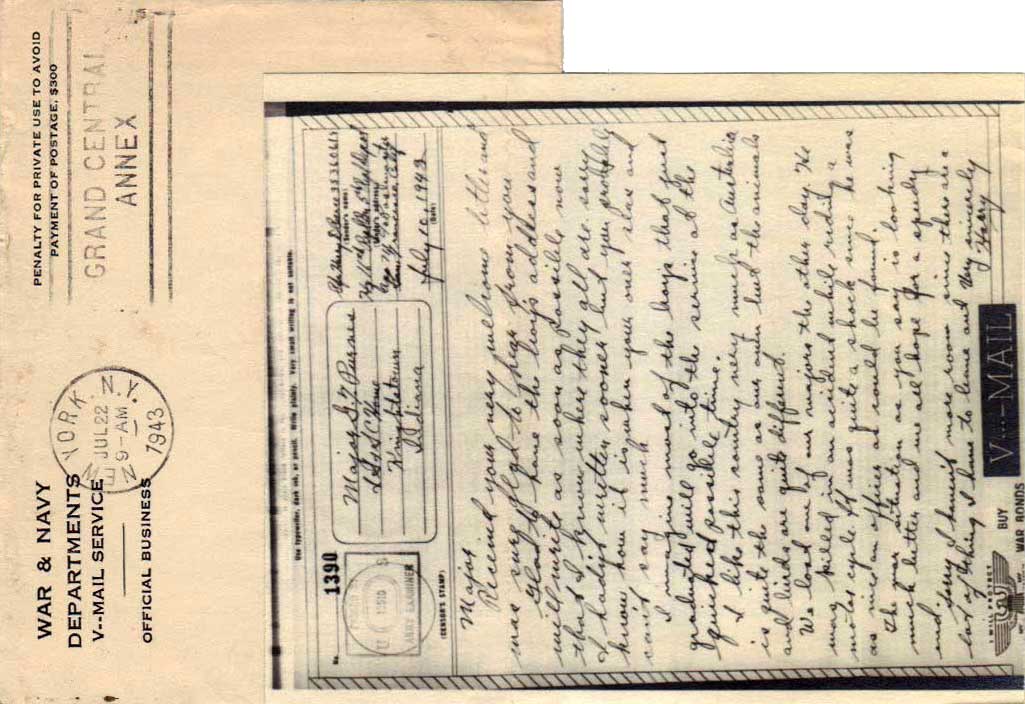 WAR & NAVY
DEPARTMENTS
V--MAIL SERVICE
OFFICIAL BUSINESS
NEW YORK, N.Y.
JUL 22
9-AM
1943
PENALTY FOR PRIVATE USE TO AVOID
PAYMENT OF POSTAGE, $300
GRAND CENTRAL
ANNEX
Use typewriter, dark ink, or pencil. Write plainly. Very small writing is not suitable.
No.
1390
(CENSOR'S STAMP)
ARMY EXAMINER
Major S. Y.
I S S C Home
Knightstown
Indiana
(Sender's name)
(Sender's address)
San Francisco, Calif
July 10, 1943
(Date)
Major
Received your very welcome letter and
was sure glad to hear from you
Glad to have the boys address and
will write as soon as possible now
that I know where they all are. Sorry
I hadn't written sooner but you probably
know how it is when your over seas and
can't say much
I imagine most of the boys that just
graduated will go into the service at the
quickest possible time.
I like this country very much as Australia
is quite the same as our own but the animals
and birds are quite different.
We lost one of our majors the other day. He
was killed in an accident while riding a
motor cycle. It was quite a shock since he was
as nice an officer as could be found.
The war situation as you say is looking
much better and we all hope for a speedy
end.
Sorry I havent more room since there are a
lot of things I have to leave out Very sincerely
Harry
I WILL PROTECT
BUY
WAR BONDS
V···—MAIL